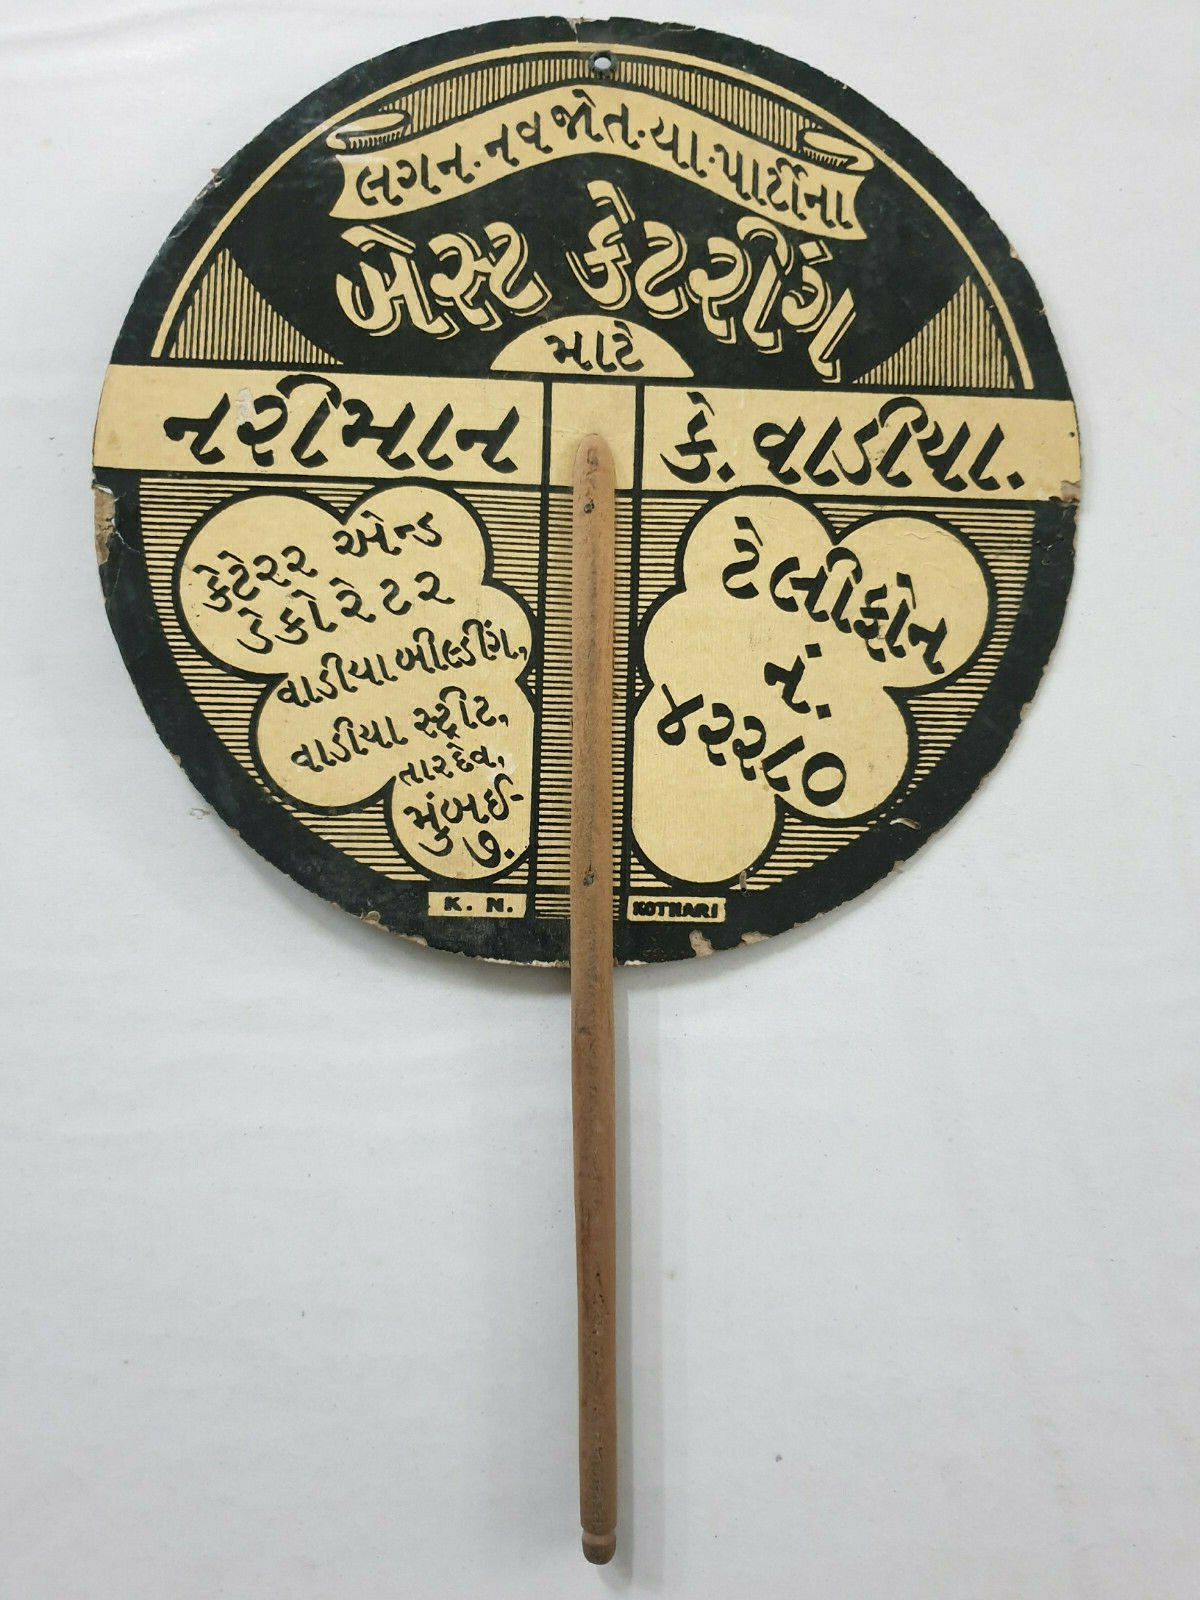 લગન·નવજોત·યા·પાર્ટીના
બેસ્ટ કેટરીંગ
માટે
નરીમાન કે. વાડીયા.
કેટેરર એન્ડ
ડેકોરેટર
વાડીયા બીલ્ડીંગ,
વાડીયા સ્ટ્રીટ,
તારદેવ,
મુંબઈ-
૭.
ટેલીફોન
નં.
૪૨૨૮૦
K. N. KOTHARI